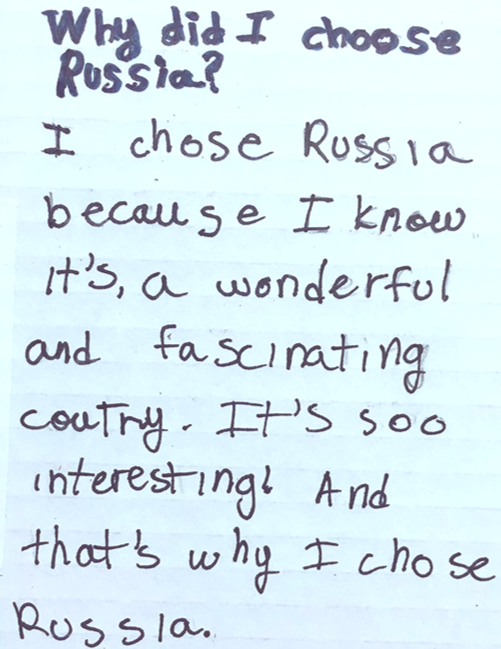 Why did I choose
Russia?
I chose Russia
because I know
it's, a wonderful
and fascinating
coutry. It's soo
interesting! And
that's why I chose
Russia.